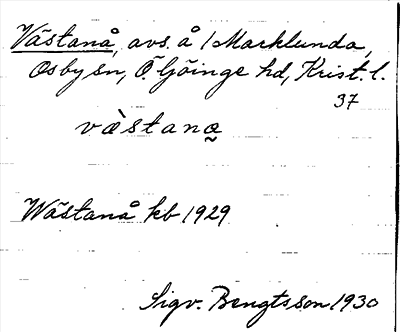 Västanå, avs. å /Marklunda,
Osby sn, Ö. Göinge hd, Krist. l.
37
vèstanæ̰
Wästanå kb 1929
Sigv. Bengtsson 1930